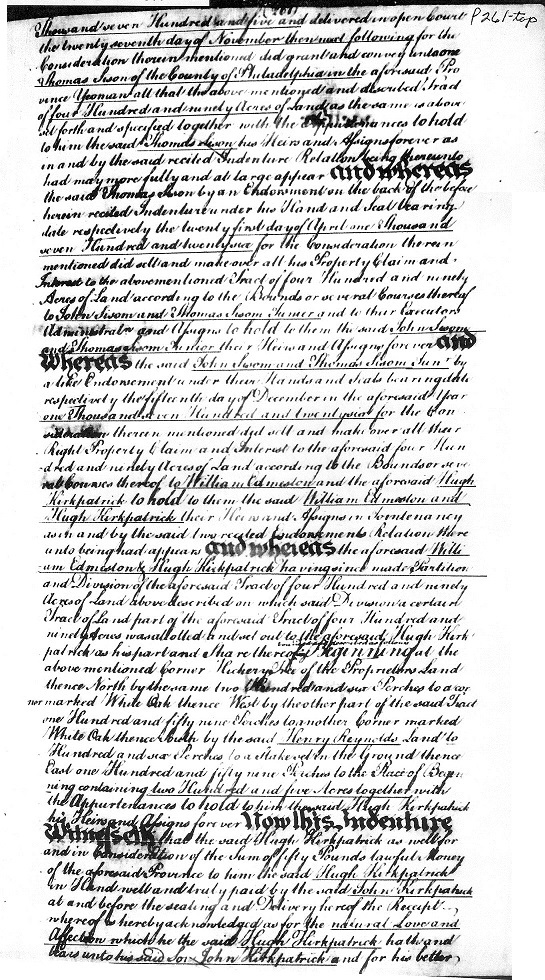 P261-top
Thousand seven Hundred and five and delivered in open Court
the twenty seventh day of November then next following for the
Consideration therein mentioned did grant and convey unto one
Thomas Sison of the County of Philadelphia in the aforesaid Pro
vince Yeoman all that the above mentioned and described Tract
of four Hundred and ninety Acres of Land as the same is above
set forth and specified together with the Appurtenances to hold
to him the said Thomas Sison his Heirs and Assigns forever as
in and by the said recited Indenture Relation being thereunto
had may more fully and at large appear and whereas
the said Thomas Sison by an Endorsment on the back of the before
herein recited Indenture under his Hand and Seal bearing
date respectively the twenty first day of April one Thousand
seven Hundred and twenty six for the Consideration therein
mentioned did sell and make over all his Property Claim and
Interest to the abovementioned Tract of four Hundred and ninety
Acres of Land according to the Bounds or several Courses thereof
to John Sisom and Thomas Sisom Junior and to their Executors
Administratrs and Assigns to hold to them the said John Sisom
and Thomas Sisom Junior their Heirs and Assigns forever and
Whereas the said John Sisom and Thomas Sisom Junr by
a like Endorsement under their Hands and Seals bearing date
respectively the fifteenth day of December in the aforesaid Year
one Thousand seven Hundred and twenty six for the Con
sideration therein mentioned did sell and make over all their
Right Property Claim and Interest to the aforesaid four Hun
dred and ninety Acres of Land according to the Bounds or seve
ral Courses thereof to William Edmeston and the aforesaid Hugh
Kirkpatrick to hold to them the said William Edmeston and
Hugh Kirkpatrick their Heirs and Assigns in Jointenancy
as in and by the said two recited Endorsements Relation there
unto being had appears and whereas the aforesaid Willi
am Edmeston & Hugh Kirkpatrick having since made Partition
and Division of the aforesaid Tract of four Hundred and ninety
Acres of Land above described on which said Division a certain
Tract of Land part of the aforesaid Tract of four Hundred and
ninety Acres was allotted and set out to the aforesaid Hugh Kirk
patrick as his part and Share thereof Beginning at the
above mentioned Corner Hickery Tree of the Proprietors Land
thence North by the same two Hundred and six Perches to a cor
ner marked White Oak thence West by the other part of the said Tract
one Hundred and fifty nine Perches to another Corner marked
White Oak thence South by the said Henry Reynolds Land to
Hundred and six Perches to a Stake set in the Ground thence
East one Hundred and fifty nine Perches to the Place of Begin
ning containing two Hundred and five Acres together with
the Appurtenances to hold to him the said Hugh Kirkpatrick
his Heirs and Assigns forever Now this Indenture
Witnesseth that the said Hugh Kirkpatrick as well for
and in Consideration of the Sum of fifty Pounds lawful Money
of the aforesaid Province to him the said Hugh Kirkpatrick
in Hand well and truly paid by the said John Kirkpatrick
at and before the sealing and Delivery hereof the Receipt
whereof is hereby acknowledged as for the natural Love and
Affection which he the said Hugh Kirkpatrick hath and
bears unto his said Son John Kirkpatrick and for his better